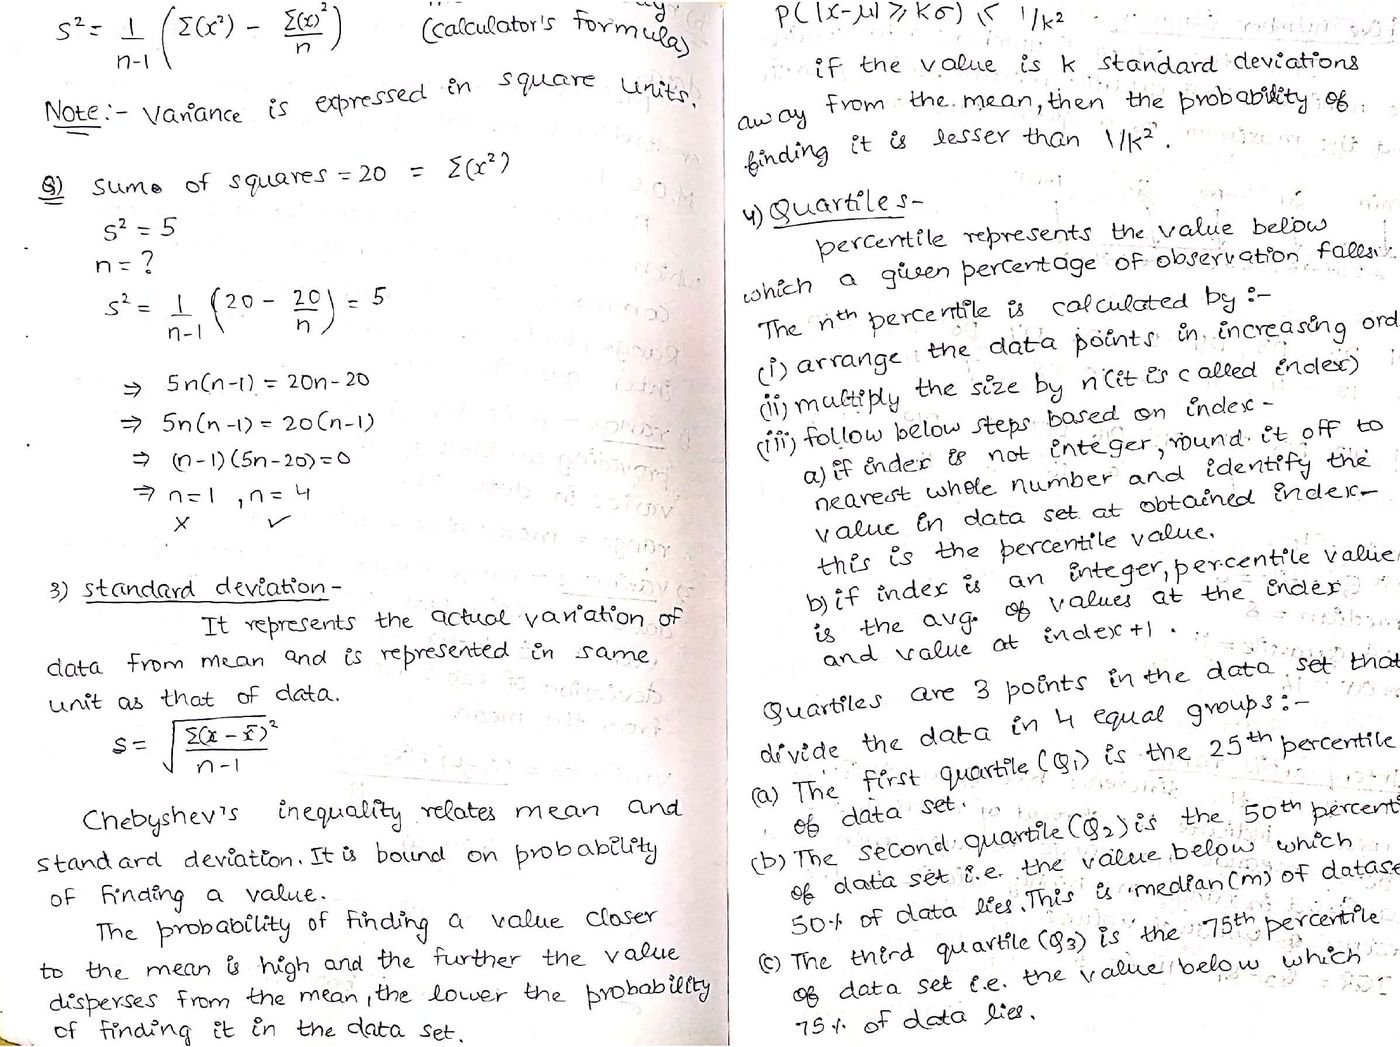 S² = 1/(n-1) (Σ(x²) - Σ(x)²/n) (calculator's formula)
Note:- Variance is expressed in square units.
Q) sums of squares = 20 = Σ(x²)
S² = 5
n = ?
S² = 1/(n-1) (20 - 20/n) = 5
⇒ 5n(n-1) = 20n-20
⇒ 5n(n-1) = 20(n-1)
⇒ (n-1)(5n-20)=0
⇒ n=1 , n=4
× ✓
3) standard deviation-
It represents the actual variation of
data from mean and is represented in same
unit as that of data.
S = √(Σ(x - x̄)²/(n-1))
Chebyshev's inequality relates mean and
standard deviation. It is bound on probability
of finding a value.
The probability of finding a value closer
to the mean is high and the further the value
disperses from the mean, the lower the probability
of finding it in the data set.
P(|x-μ| ⩾ kσ) ⩽ 1/k²
if the value is k standard deviations
away from the mean, then the probability of
finding it is lesser than 1/k².
4) Quartiles-
percentile represents the value below
which a given percentage of observation falls.
The nth percentile is calculated by :-
(i) arrange the data points in increasing ord
(ii) multiply the size by n (it is called index)
(iii) follow below steps based on index -
a) if index is not integer, round it off to
nearest whole number and identify the
value in data set at obtained index-
this is the percentile value.
b) if index is an integer, percentile value
is the avg. of values at the index
and value at index+1 .
Quartiles are 3 points in the data set that
divide the data in 4 equal groups:-
(a) The first quartile (Q1) is the 25th percentile
of data set.
(b) The second quartile (Q2) is the 50th percent
of data set i.e. the value below which
50% of data lies. This is median (m) of datase
(c) The third quartile (Q3) is the 75th percentile
of data set i.e. the value below which
75% of data lies.